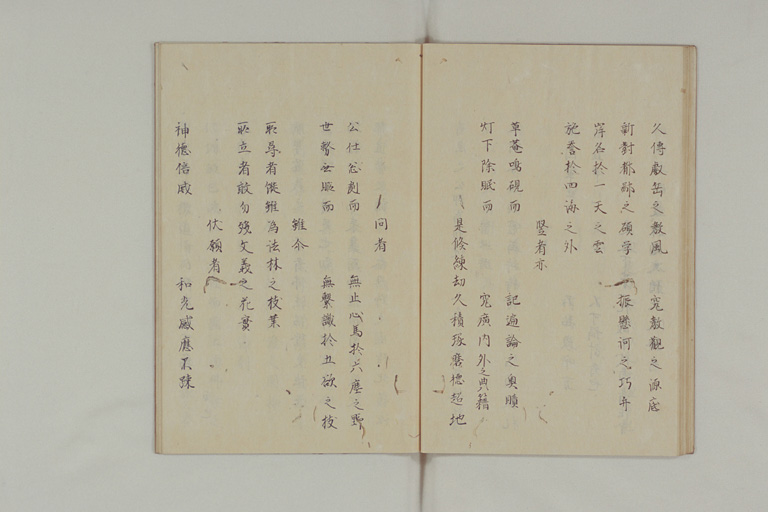 久傳叡岳之教風 究教觀之源底
新對都鄙之碩學 振懸河之巧弁
岸名於一天之雲
施誉於四海之外
竪者亦
草菴鳴硯而 記遍論之奥賾
灯下除眠而 究廣内外之典籍
是修練劫久積琢磨徳超地
問者
公仕忽劇而 無止心馬於六塵之野
世務無暇而 無繋識於五欲之枝
雖令
聴尊者縦雖為法林之枝葉
聴立者敢勿残文義之花實
伏願者
神徳倍威 和光感應不疎